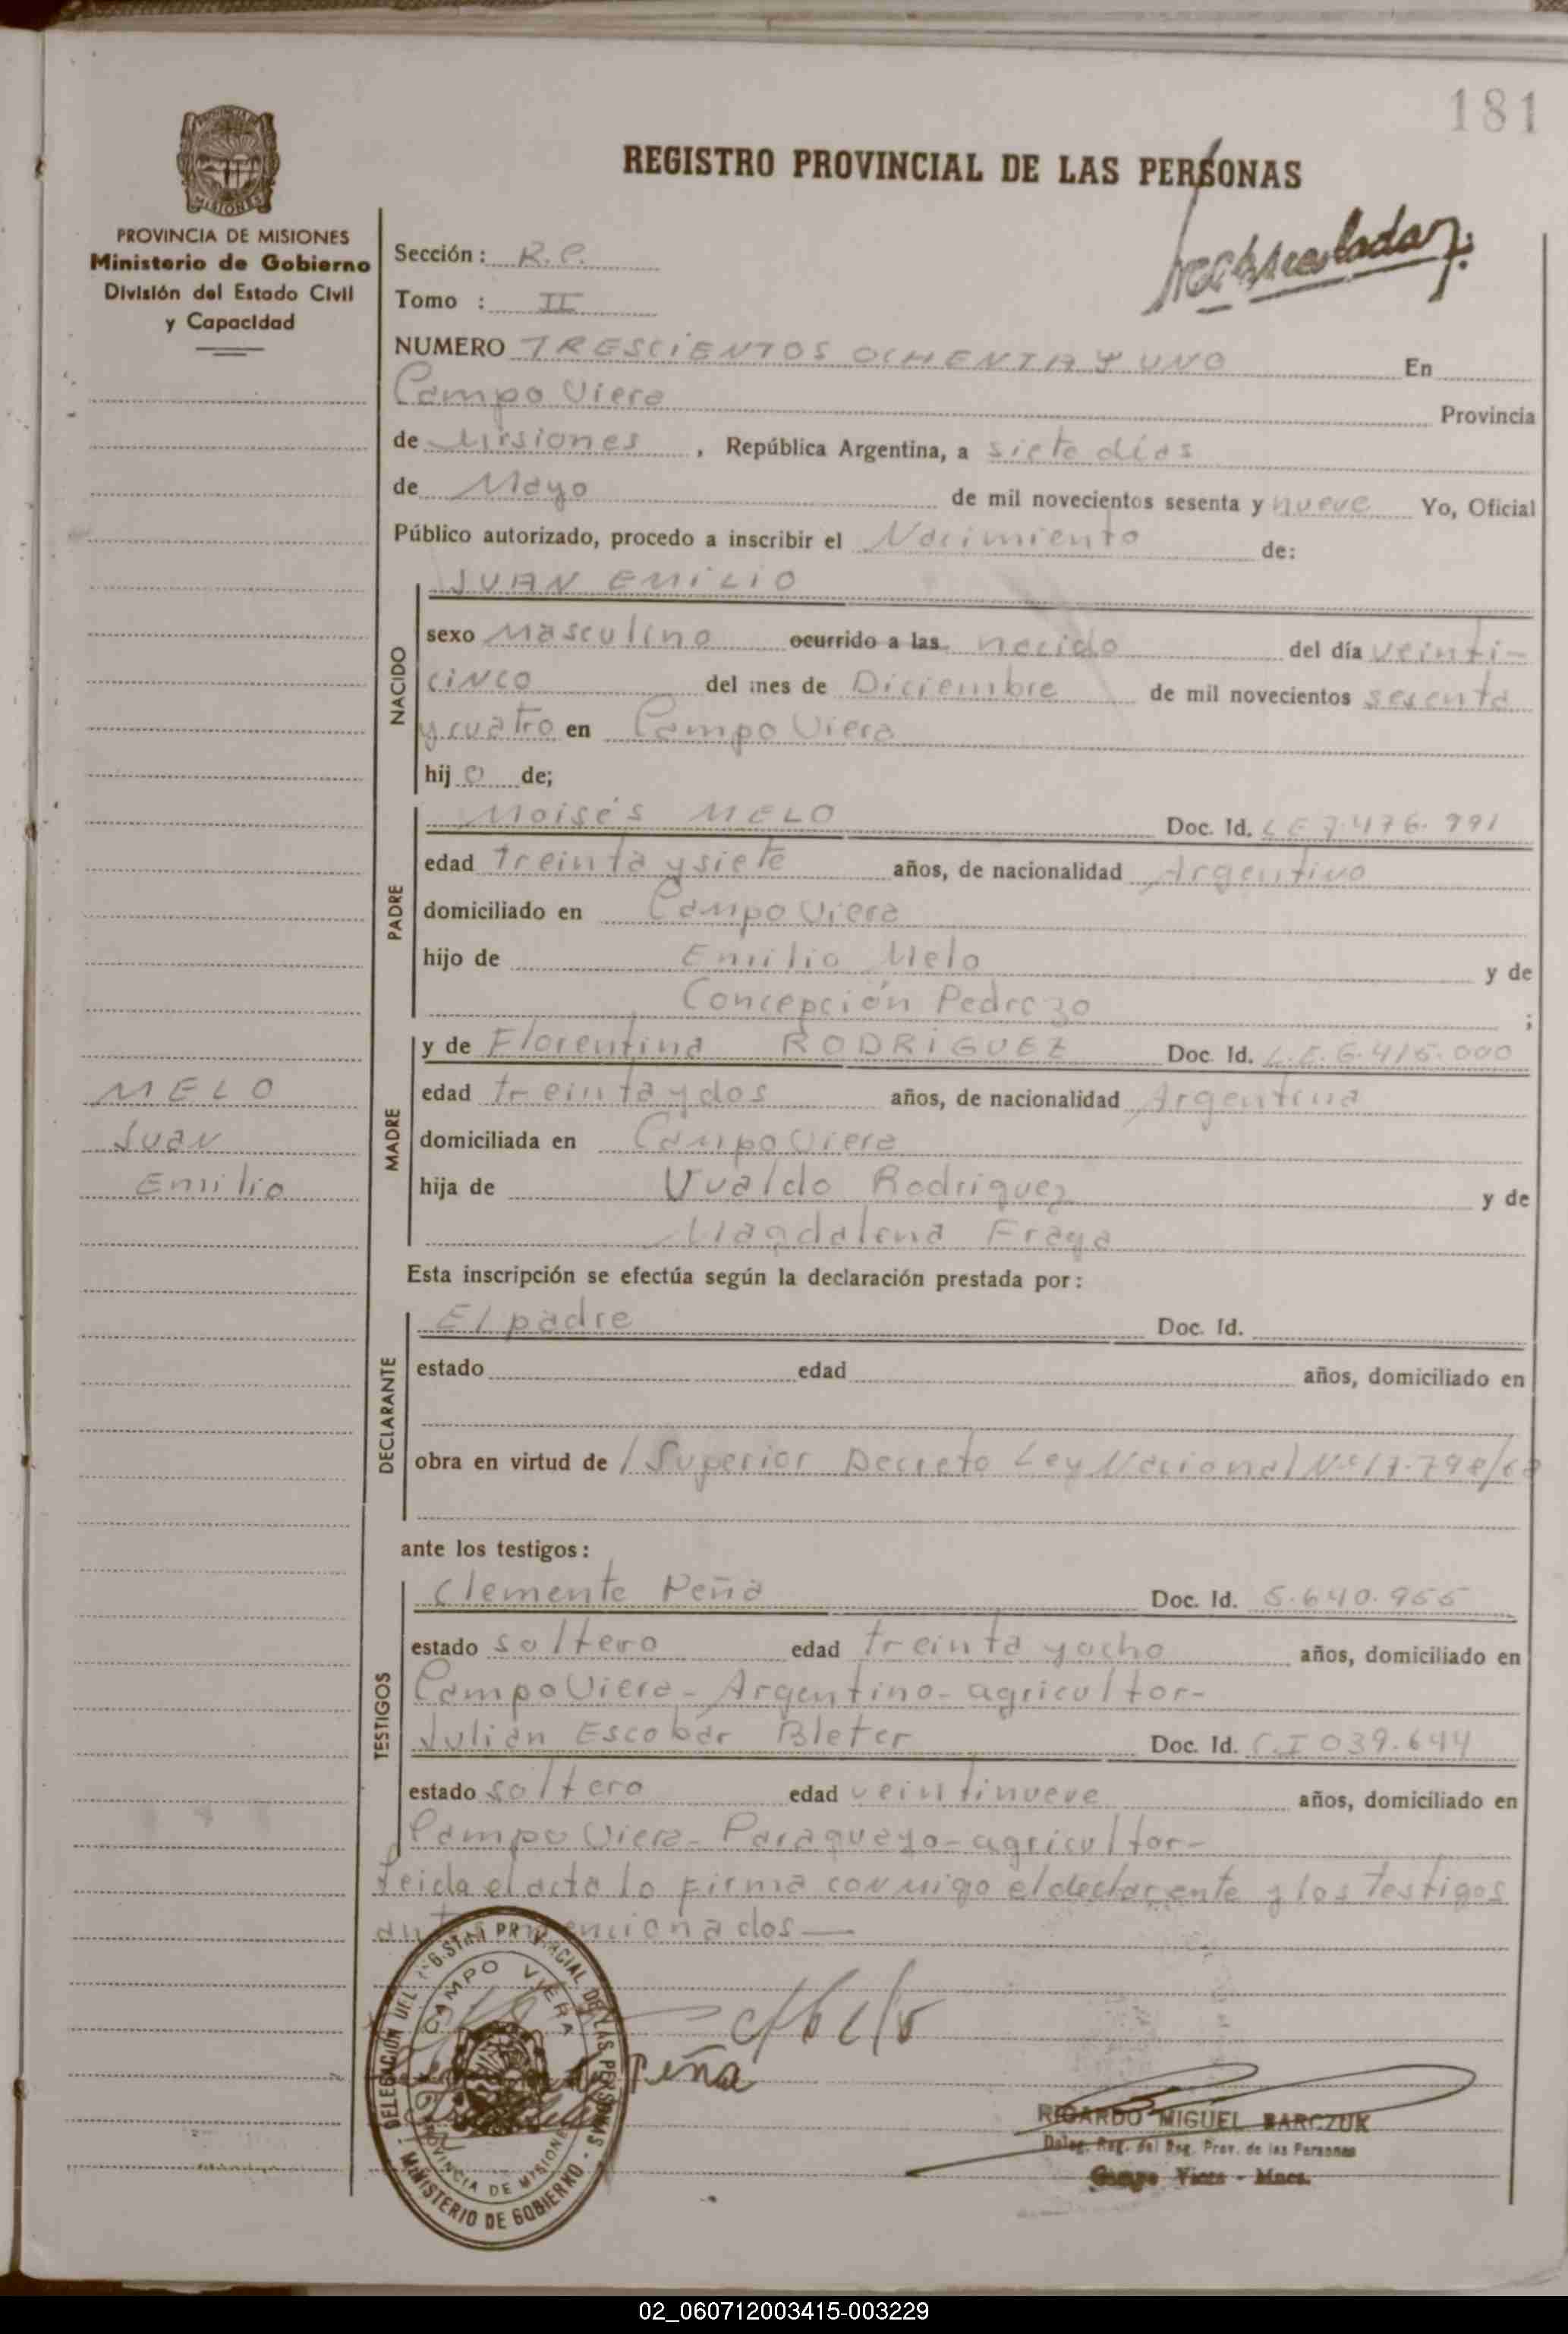 181
REGISTRO PROVINCIAL DE LAS PERSONAS
MISIONES
PROVINCIA DE MISIONES
Ministerio de Gobierno
División del Estado Civil
y Capacidad
Sección: R.C.
Tomo : II
NUMERO TRESCIENTOS OCHENTA Y UNO En
Campo Viera Provincia
de Misiones, República Argentina, a siete días
de Mayo de mil novecientos sesenta y nueve Yo, Oficial
Público autorizado, procedo a inscribir el Nacimiento de:
NACIDO
JUAN EMILIO
sexo Masculino ocurrido a las nacido del día veinti-
cinco del mes de Diciembre de mil novecientos sesenta
y cuatro en Campo Viera
hij o de;
PADRE
Moisés MELO Doc. Id. L E 7.476.991
edad treinta y siete años, de nacionalidad Argentino
domiciliado en Campo Viera
hijo de Emilio Melo y de
Concepción Pedrozo ;
MADRE
y de Florentina RODRIGUEZ Doc. Id. L.C. 6.415.000
edad treinta y dos años, de nacionalidad Argentina
domiciliada en Campo Viera
hija de Uvaldo Rodriguez y de
Magdalena Fraga
MELO
Juan
Emilio
Esta inscripción se efectúa según la declaración prestada por:
DECLARANTE
El padre Doc. Id.
estado edad años, domiciliado en
obra en virtud de / Superior Decreto Ley Nacional Nº 17.798/68
ante los testigos:
TESTIGOS
Clemente Peña Doc. Id. 5.640.955
estado soltero edad treinta y ocho años, domiciliado en
Campo Viera - Argentino - agricultor-
Julián Escobar Bleter Doc. Id. C.I 039.644
estado soltero edad veintinueve años, domiciliado en
Campo Viera - Paraguayo - agricultor-
Leida el acta lo firma conmigo el declarante y los testigos
antes mencionados—
DELEGACIÓN DEL REGISTRO PROVINCIAL DE LAS PERSONAS
CAMPO VIERA
PROVINCIA DE MISIONES
MINISTERIO DE GOBIERNO
Peña
RICARDO MIGUEL BARCZUK
Deleg. Reg. del Reg. Prov. de las Personas
Campo Viera - Mnes.
02_060712003415-003229